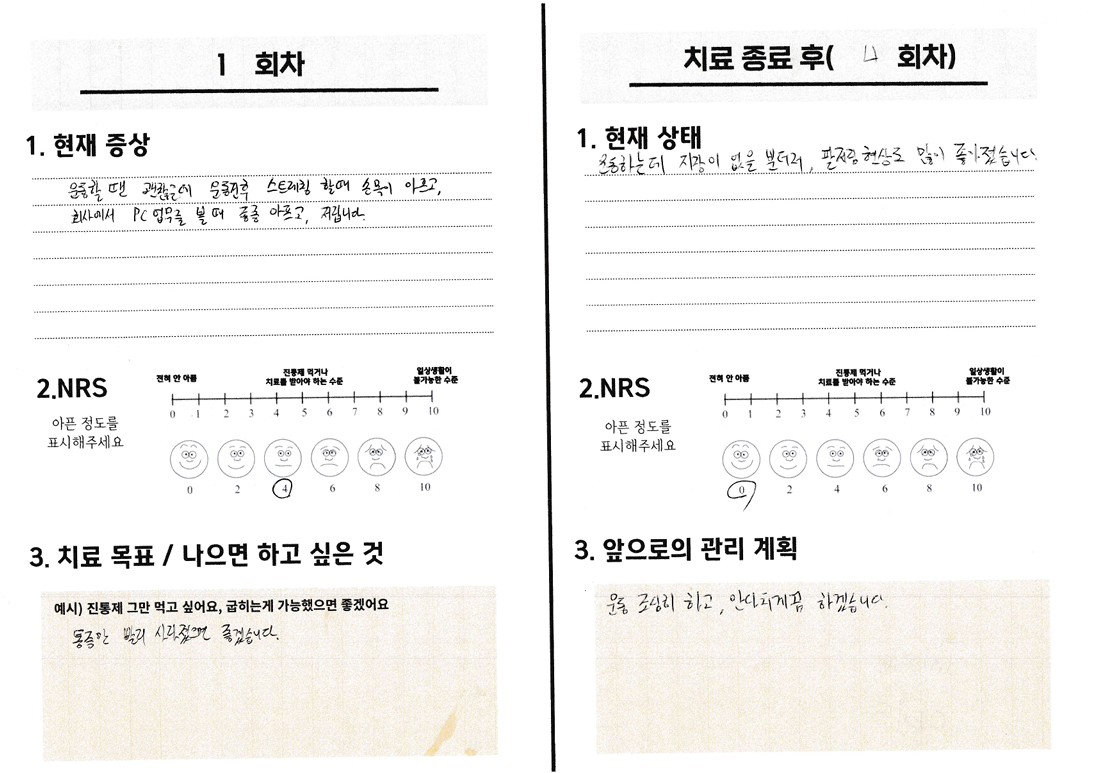 1 회차
1. 현재 증상
운동할 땐 괜찮은데 운동전후 스트레칭 할때 손목이 아프고,
회사에서 PC업무를 볼 때 종종 아프고, 저립니다.
2.NRS
아픈 정도를
표시해주세요
전혀 안 아픔
진통제 먹거나
치료를 받아야 하는 수준
일상생활이
불가능한 수준
0 1 2 3 4 5 6 7 8 9 10
0 2 4 6 8 10
3. 치료 목표 / 나으면 하고 싶은 것
예시) 진통제 그만 먹고 싶어요, 굽히는게 가능했으면 좋겠어요
통증만 빨리 사라졌으면 좋겠습니다.
치료 종료 후( 4 회차)
1. 현재 상태
운동하는데 지장이 없을 뿐더러, 팔저림 현상도 많이 좋아졌습니다.
2.NRS
아픈 정도를
표시해주세요
전혀 안 아픔
진통제 먹거나
치료를 받아야 하는 수준
일상생활이
불가능한 수준
0 1 2 3 4 5 6 7 8 9 10
0 2 4 6 8 10
3. 앞으로의 관리 계획
운동 조심히 하고, 안다치게끔 하겠습니다.